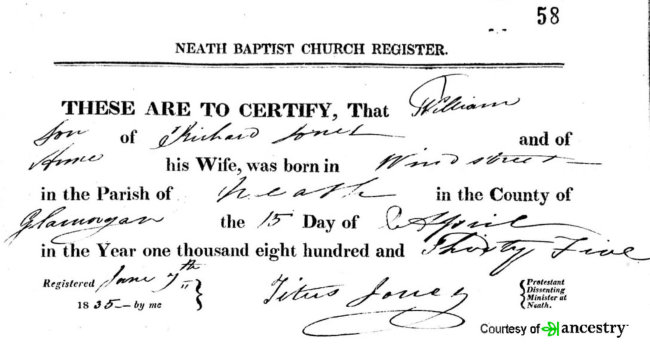 58
NEATH BAPTIST CHURCH REGISTER.
THESE ARE TO CERTIFY, That William
Son of Richard Jones and of
Anne his Wife, was born in Wind street
in the Parish of Neath in the County of
Glamorgan the 15 Day of April
in the Year one thousand eight hundred and Thirty Five
Registered June 7th
1835 — by me
Titus Jones
Protestant
Dissenting
Minister at
Neath.
Courtesy of ancestry